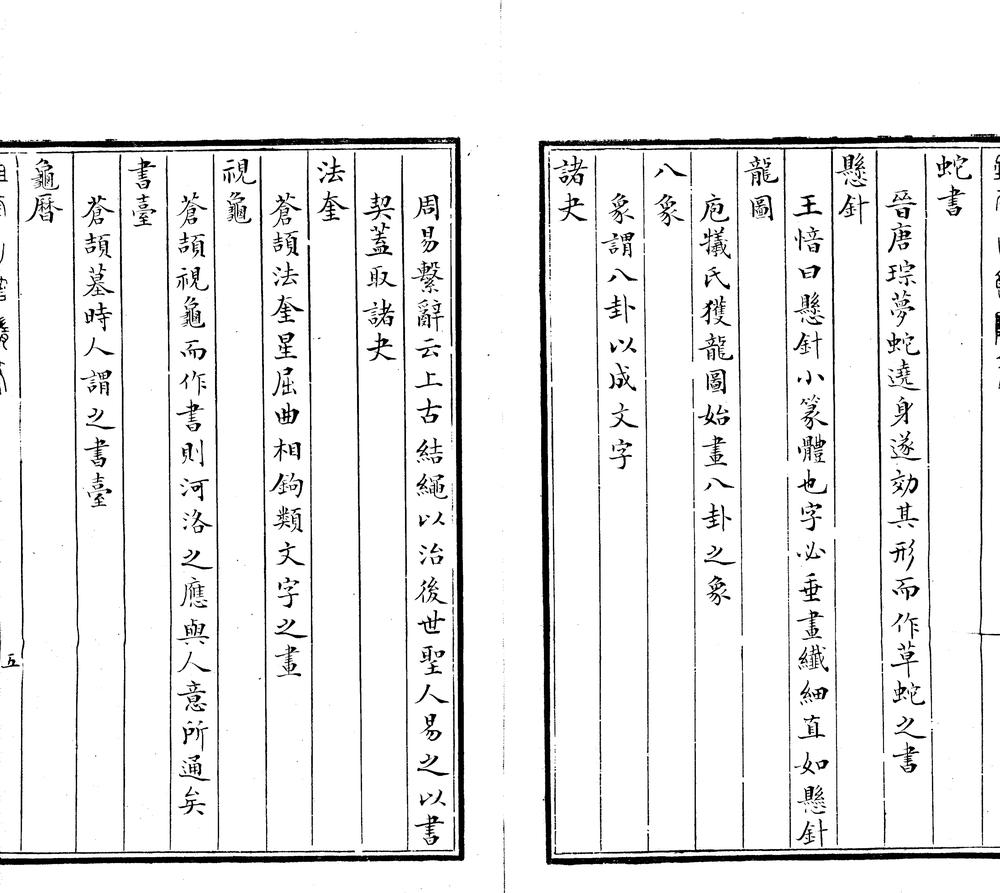 蛇書
晉唐琮夢蛇遶身遂効其形而作草蛇之書
懸針
王愔曰懸針小篆體也字必垂畫纖細直如懸針
龍圖
庖犧氏獲龍圖始畫八卦之象
八象
象謂八卦以成文字
諸夬
周易繫辭云上古結繩以治後世聖人易之以書
契蓋取諸夬
法奎
蒼頡法奎星屈曲相鉤類文字之畫
視龜
蒼頡視龜而作書則河洛之應與人意所通矣
書臺
蒼頡墓時人謂之書臺
龜曆
五